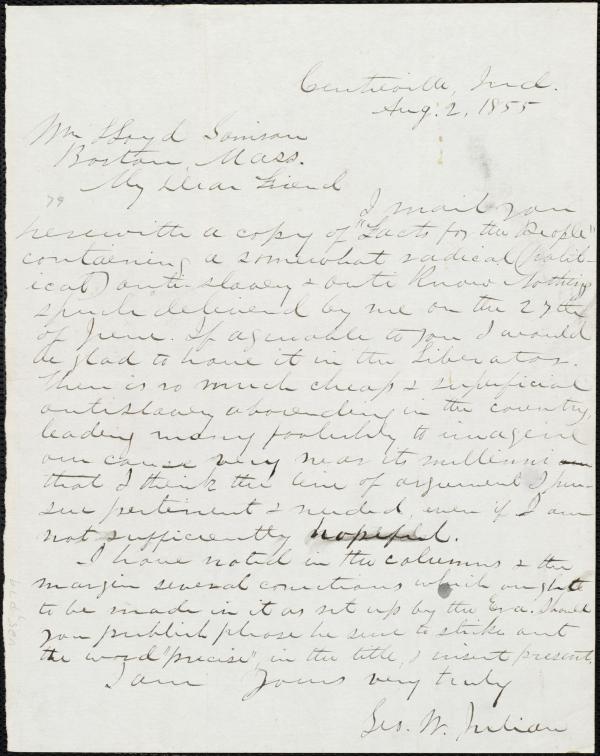 Centreville, Ind.
Aug. 2, 1855
Wm Lloyd Garrison
Boston, Mass.
My Dear Friend
I mail you
herewith a copy of "Facts for the People"
containing a somewhat radical (polit-
ical) anti-slavery & anti Know Nothing
speech delivered by me on the 27th
of June. If agreeable to you I would
be glad to have it in the Liberator.
There is so much cheap & superficial
antislavery abounding in the country,
leading many foolishly to imagine
our cause very near its millennium
that I think the line of argument I pur-
sue pertinent & needed, even if I am
not sufficiently hopeful.
I have noted in the columns & the
margin several corrections which ought
to be made in it as set up by the Era. Should
you publish please be sure to strike out
the word "precise", in the title, & insert present.
I am Yours very truly
Geo. W. Julian